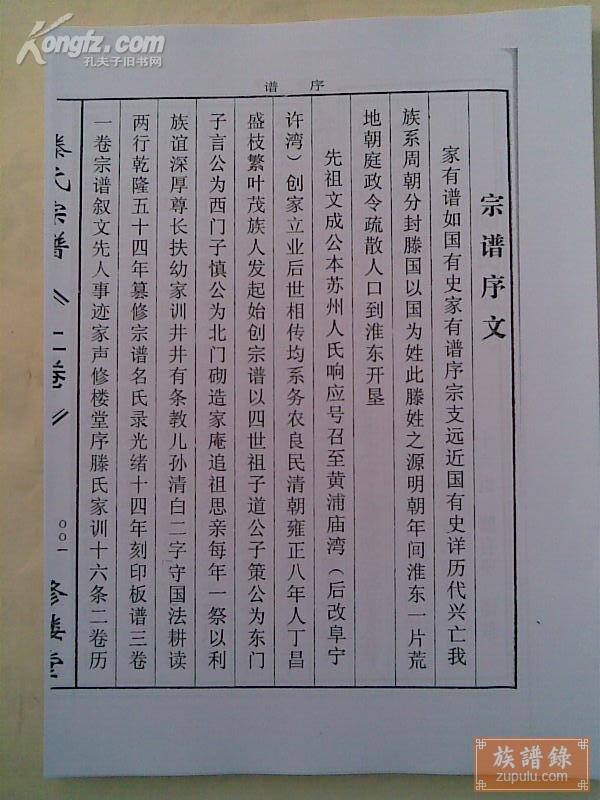 Kongfz.com
孔夫子旧书网
谱序
宗谱序文
家有谱如国有史家有谱序宗支远近国有史详历代兴亡我
族系周朝分封滕国以国为姓此滕姓之源明朝年间淮东一片荒
地朝庭政令疏散人口到淮东开垦
先祖文成公本苏州人氏响应号召至黄浦庙湾（后改阜宁
许湾）创家立业后世相传均系务农良民清朝雍正八年人丁昌
盛枝繁叶茂族人发起始创宗谱以四世祖子道公子策公为东门
子言公为西门子慎公为北门砌造家庵追祖思亲每年一祭以利
族谊深厚尊长扶幼家训井井有条教儿孙清白二字守国法耕读
两行乾隆五十四年篡修宗谱名氏录光绪十四年刻印板谱三卷
一卷宗谱叙文先人事迹家声修楼堂序滕氏家训十六条二卷历
滕氏宗谱《二卷》
00一
修楼堂
族譜錄
zupulu.com